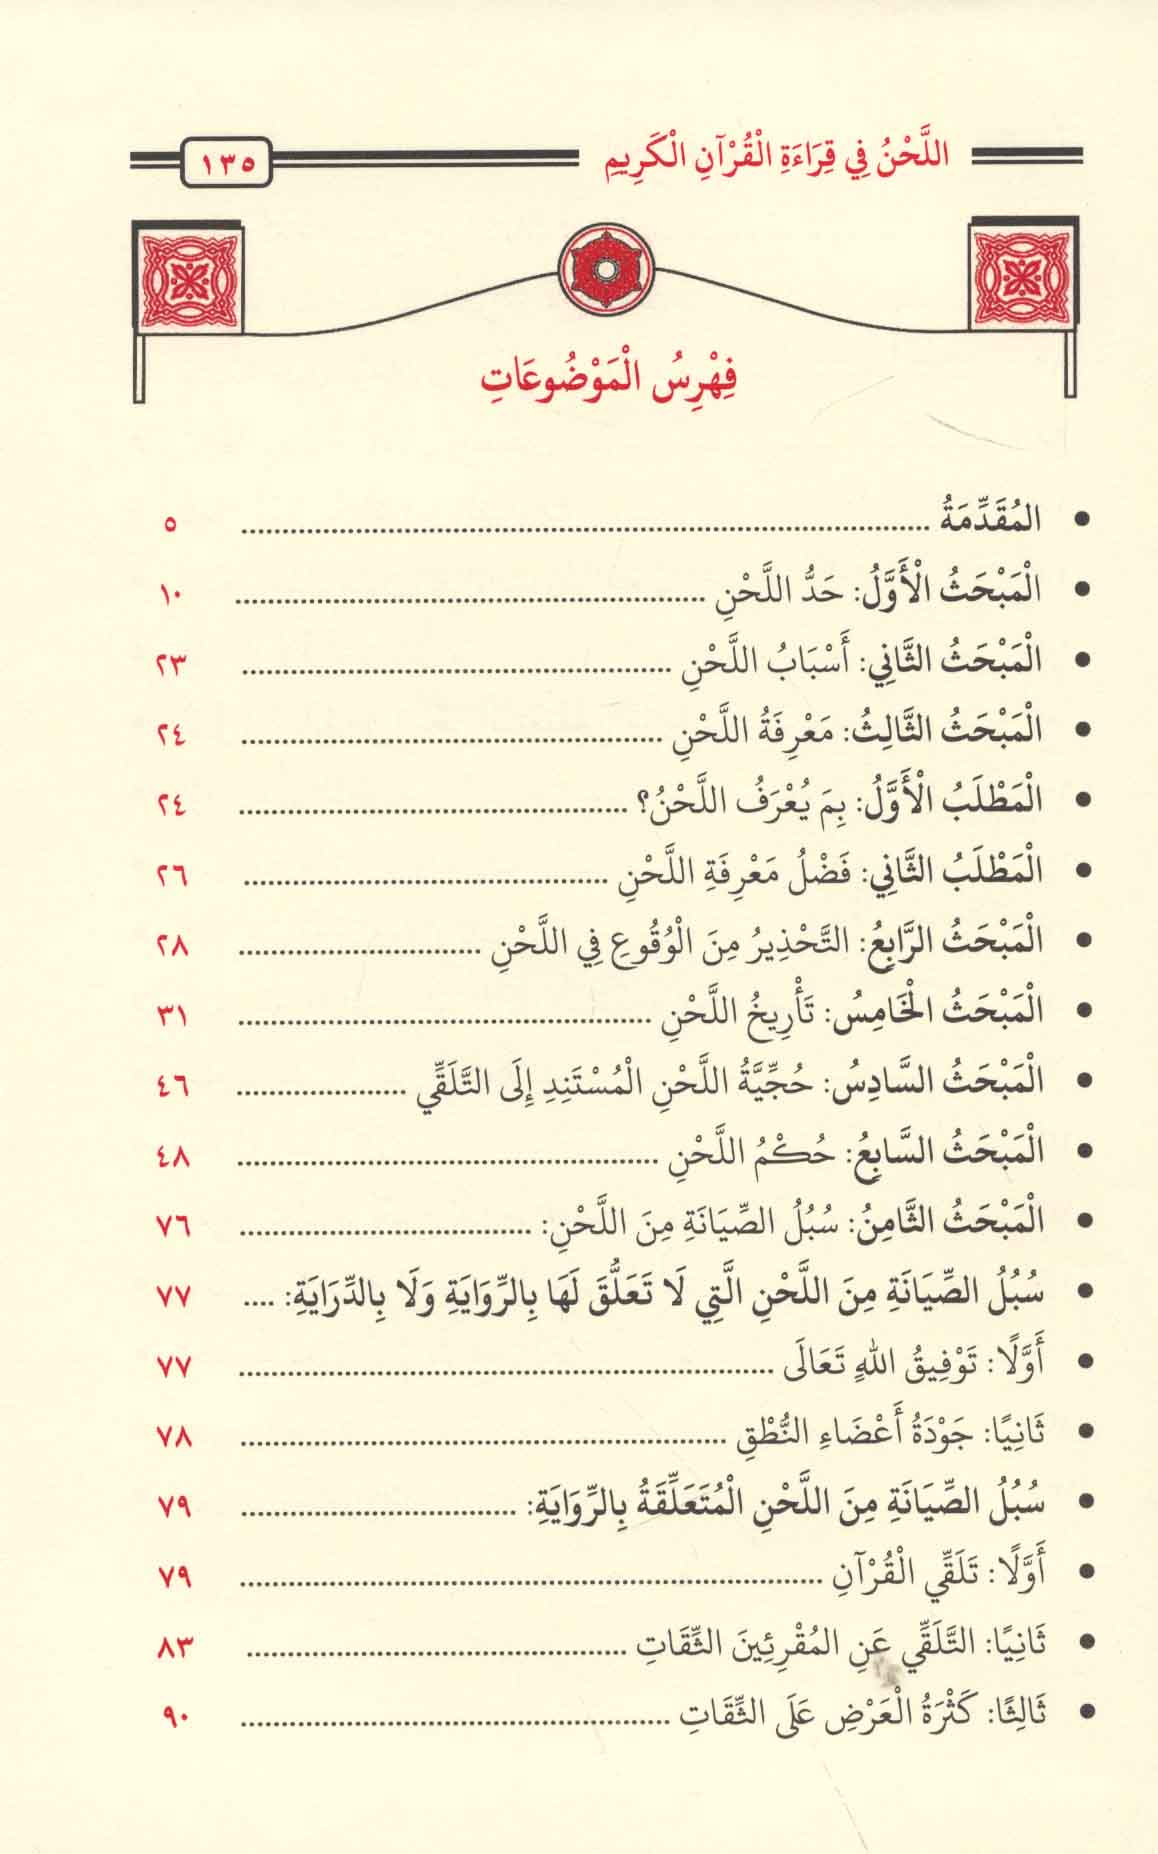 اللَّحْنُ فِي قِرَاءَةِ الْقُرْآنِ الْكَرِيمِ ١٣٥
فِهْرِسُ الْمَوْضُوعَاتِ
• المُقَدِّمَةُ ........ ٥
• الْمَبْحَثُ الْأَوَّلُ: حَدُّ اللَّحْنِ ........ ١٠
• الْمَبْحَثُ الثَّانِي: أَسْبَابُ اللَّحْنِ ........ ٢٣
• الْمَبْحَثُ الثَّالِثُ: مَعْرِفَةُ اللَّحْنِ ........ ٢٤
• الْمَطْلَبُ الْأَوَّلُ: بِمَ يُعْرَفُ اللَّحْنُ؟ ........ ٢٤
• الْمَطْلَبُ الثَّانِي: فَضْلُ مَعْرِفَةِ اللَّحْنِ ........ ٢٦
• الْمَبْحَثُ الرَّابِعُ: التَّحْذِيرُ مِنَ الْوُقُوعِ فِي اللَّحْنِ ........ ٢٨
• الْمَبْحَثُ الْخَامِسُ: تَأْرِيخُ اللَّحْنِ ........ ٣١
• الْمَبْحَثُ السَّادِسُ: حُجِّيَّةُ اللَّحْنِ الْمُسْتَنِدِ إِلَى التَّلَقِّي ........ ٤٦
• الْمَبْحَثُ السَّابِعُ: حُكْمُ اللَّحْنِ ........ ٤٨
• الْمَبْحَثُ الثَّامِنُ: سُبُلُ الصِّيَانَةِ مِنَ اللَّحْنِ: ........ ٧٦
• سُبُلُ الصِّيَانَةِ مِنَ اللَّحْنِ الَّتِي لَا تَعَلُّقَ لَهَا بِالرِّوَايَةِ وَلَا بِالدِّرَايَةِ: .... ٧٧
• أَوَّلًا: تَوْفِيقُ اللهِ تَعَالَى ........ ٧٧
• ثَانِيًا: جَوْدَةُ أَعْضَاءِ النُّطْقِ ........ ٧٨
• سُبُلُ الصِّيَانَةِ مِنَ اللَّحْنِ الْمُتَعَلِّقَةُ بِالرِّوَايَةِ: ........ ٧٩
• أَوَّلًا: تَلَقِّي الْقُرْآنِ ........ ٧٩
• ثَانِيًا: التَّلَقِّي عَنِ المُقْرِئِينَ الثِّقَاتِ ........ ٨٣
• ثَالِثًا: كَثْرَةُ الْعَرْضِ عَلَى الثِّقَاتِ ........ ٩٠